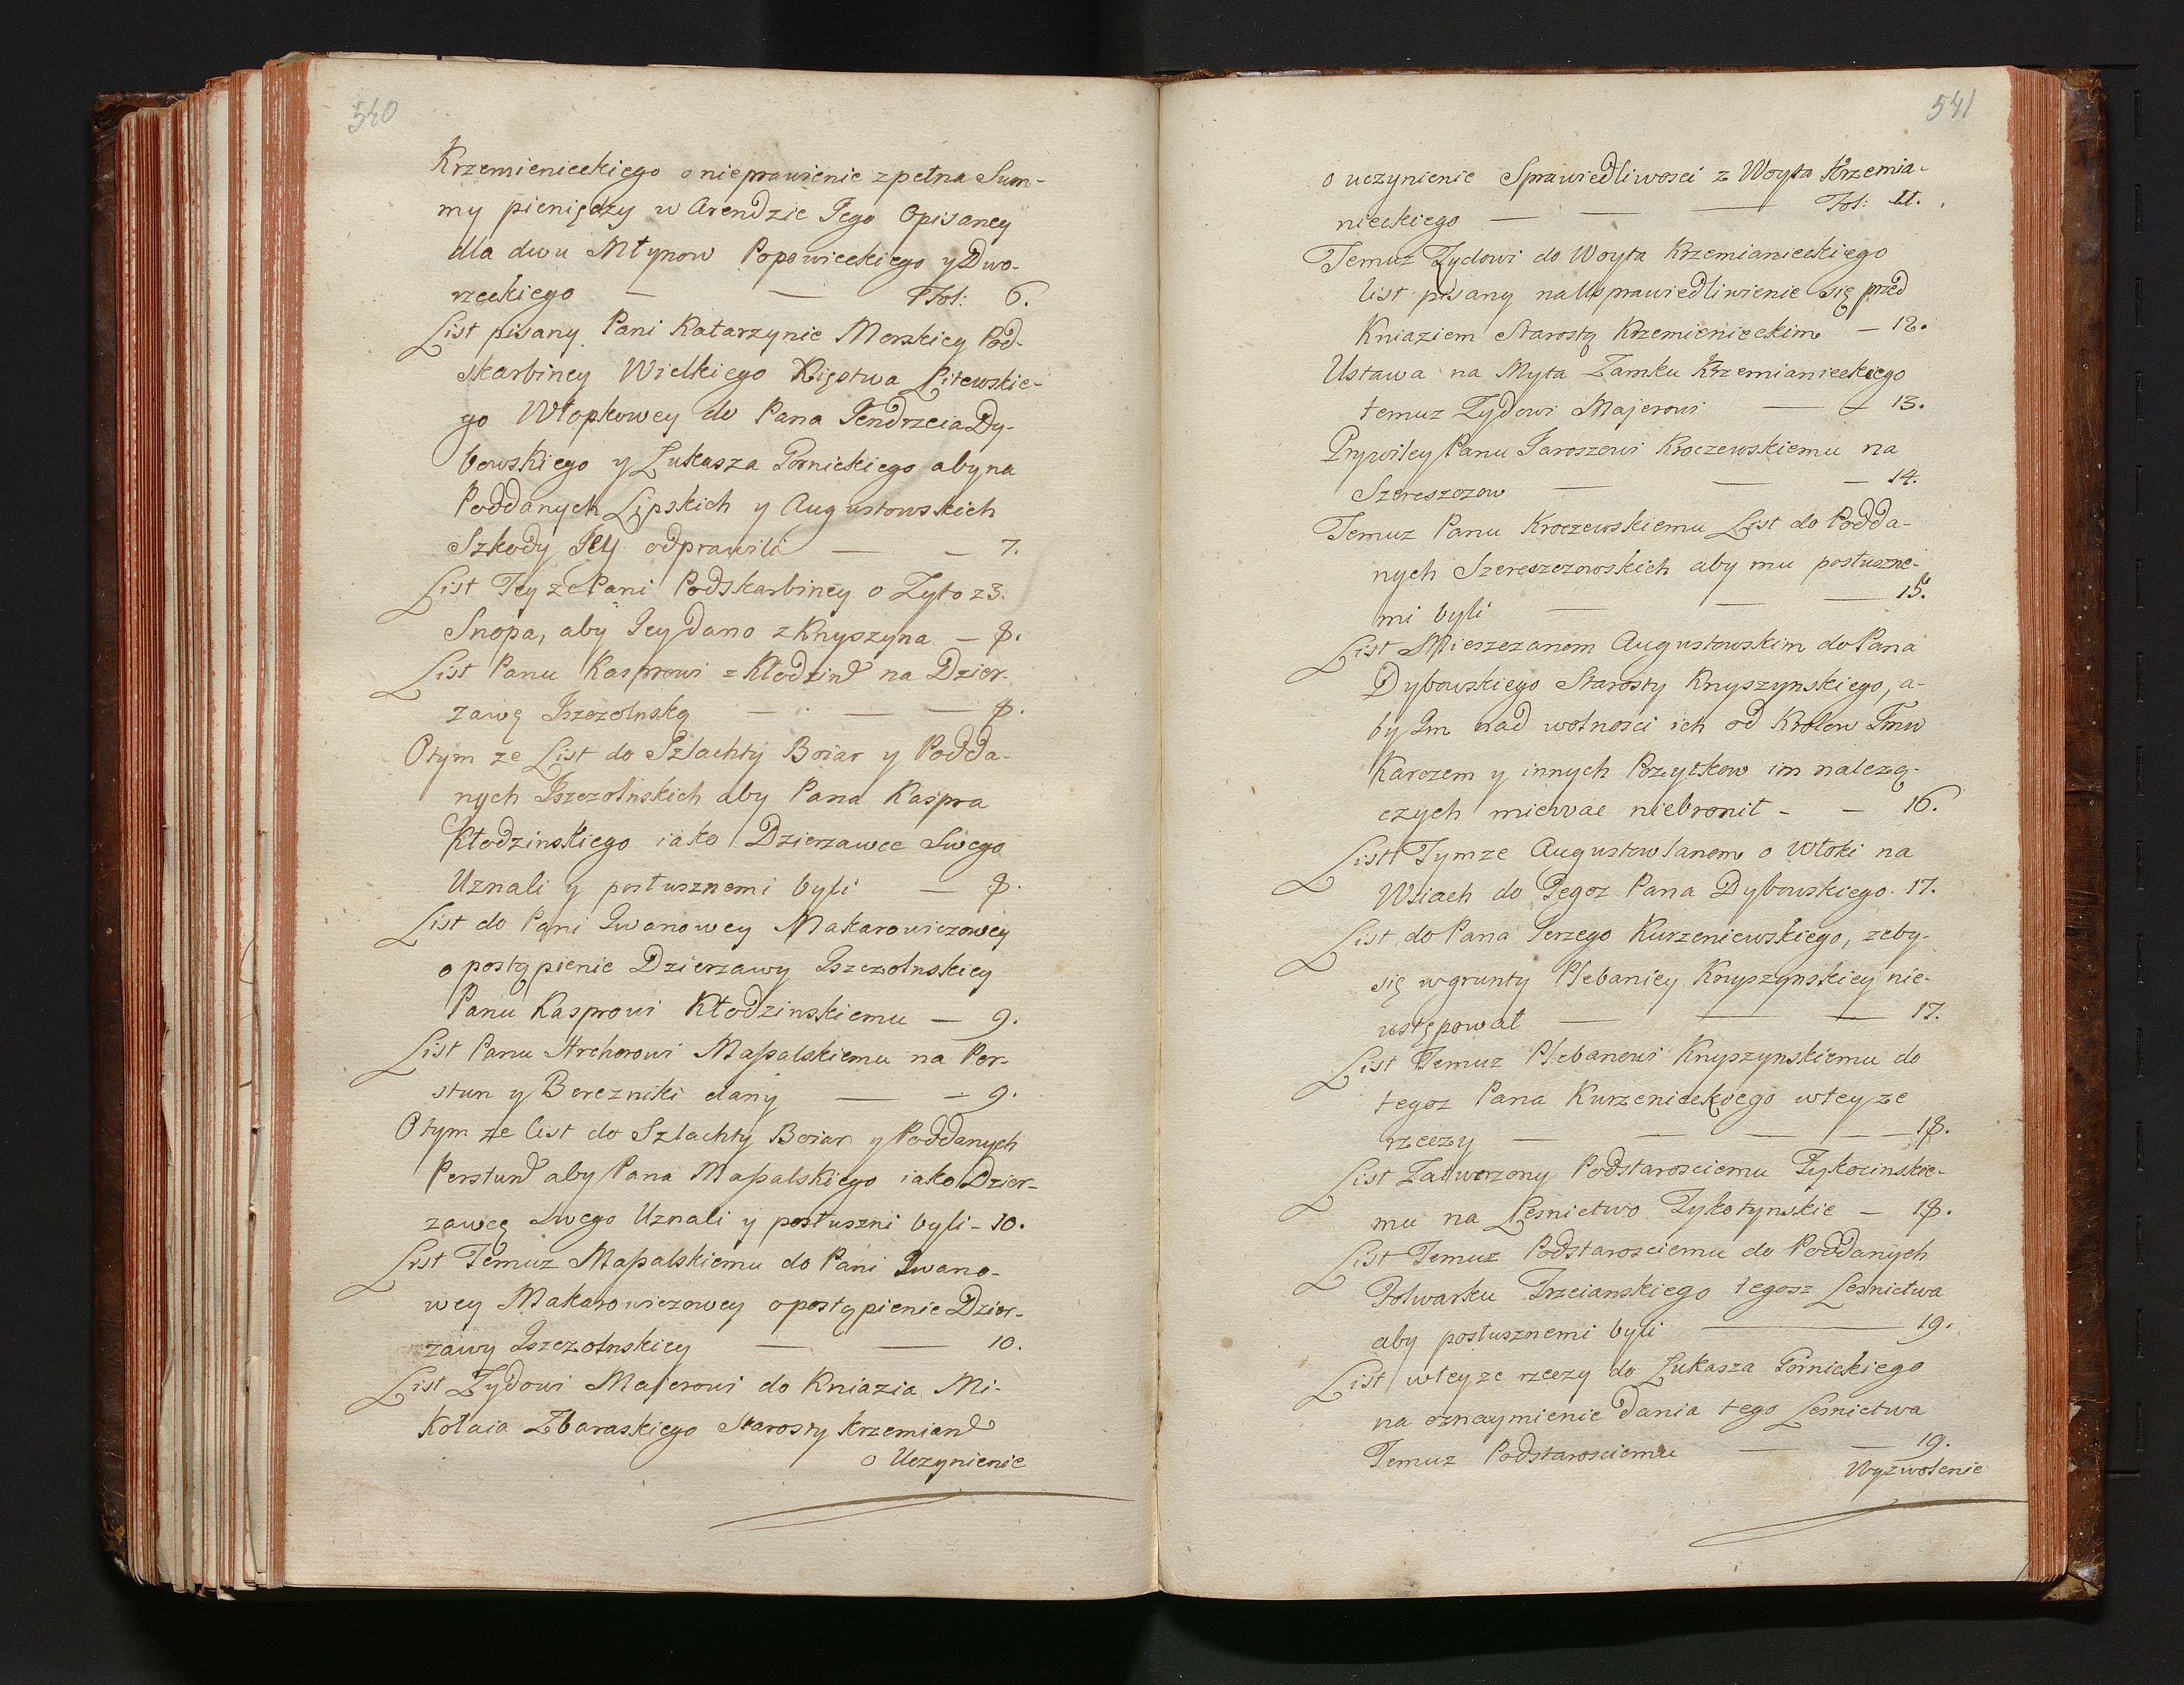 540
Krzemienieckiego o nieprawienie zpełna Sum-
my pieniędzy w Arendzie Jego Opisaney
dla dwu Młynow Popowieckiego y Dwo-
rzeckiego — — Fol: 6.
List pisany Pani Katarzynie Morskiey Pod-
skarbiney Wielkiego Xięstwa Litewskie-
go Włopkowey do Pana Jendrzeia Dy-
bowskiego y Łukasza Gornickiego aby na
Poddanych Lipskich y Augustowskich
Szkody Jey odprawili — — 7.
List Tey ze Pani Podskarbiney o Zyto z 3.
Snopa, aby Jey dano z Knyszyna — 8.
List Panu Kasprowi z Kłodzind na Dzier-
zawę Iszczolnską — — — 8.
O tym ze List do Szlachty Boiar y Podda-
nych Iszczolnskich aby Pana Kaspra
Kłodzinskiego iako Dzierzawce Swego
Uznali y posłusznemi byli — 8.
List do Pani Iwanowey Makarowiczowey
o postąpienie Dzierzawy Iszczolnskiey
Panu Kasprowi Kłodzinskiemu — 9.
List Panu Hrehorowi Massalskiemu na Per-
stun y Berezniki dany — — 9.
O tym ze list do Szlachty Boiar y Poddanych
Perstund aby Pana Massalskiego iako Dzier-
zawcę Swego Uznali y posłuszni byli - 10.
List Temuz Massalskiemu do Pani Iwano-
wey Makarowiczowey o postąpienie Dzier-
zawy Iszczolnskiey — — 10.
List Zydowi Majerowi do Kniazia Mi-
kołaia Zbaraskiego Starosty Krzemiend
o Uczynienie
541
o uczynienie Sprawiedliwosci z Woyta Krzemia-
nieckiego — — — Fol: 11.
Temuz Zydowi do Woyta Krzemianieckiego
list pisany na Usprawiedliwienie się przed
Kniaziem Starostą Krzemienieckim — 12.
Ustawa na Myta Zamku Krzemianieckiego
temuz Zydowi Majerowi — — 13.
Prywiley Panu Jaroszowi Kroczewskiemu na
Szereszozow — — — 14.
Temuz Panu Kroczewskiemu List do Podda-
nych Szereszezowskich aby mu posłuszne-
mi byli — — — 15.
List Mieszczanom Augustowskim do Pana
Dybowskiego Starosty Knyszynskiego, a-
by Im nad wolnosci ich od Krolow Imu
Karczem y innych Pozytkow im nalezą-
czych miewac niebronił - — 16.
List Tymze Augustowianom o Włoki na
Wsiach do Tegoz Pana Dybowskiego. 17.
List do Pana Jerzego Kurzeniewskiego, zeby-
się w grunty Plebaniey Knyszynskiey nie-
ustępował — — — 17.
List Temuz Plebanowi Knyszynskiemu do
tegoz Pana Kurzenieckiego w tey ze
rzeczy — — — — 18.
List Zatworzony Podstarosciemu Tykocinskie-
mu na Lesnictwo Tykotynskie — 18.
List Temuz Podstarosciemu do Poddanych
Folwarku Trzcianskiego tegosz Lesnictwa
aby posłusznemi byli — 19.
List w tey ze rzeczy do Łukasza Gornickiego
na oznaymienie dania tego Lesnictwa
Temuz Podstarosciemu — — 19.
Wyzwolenie